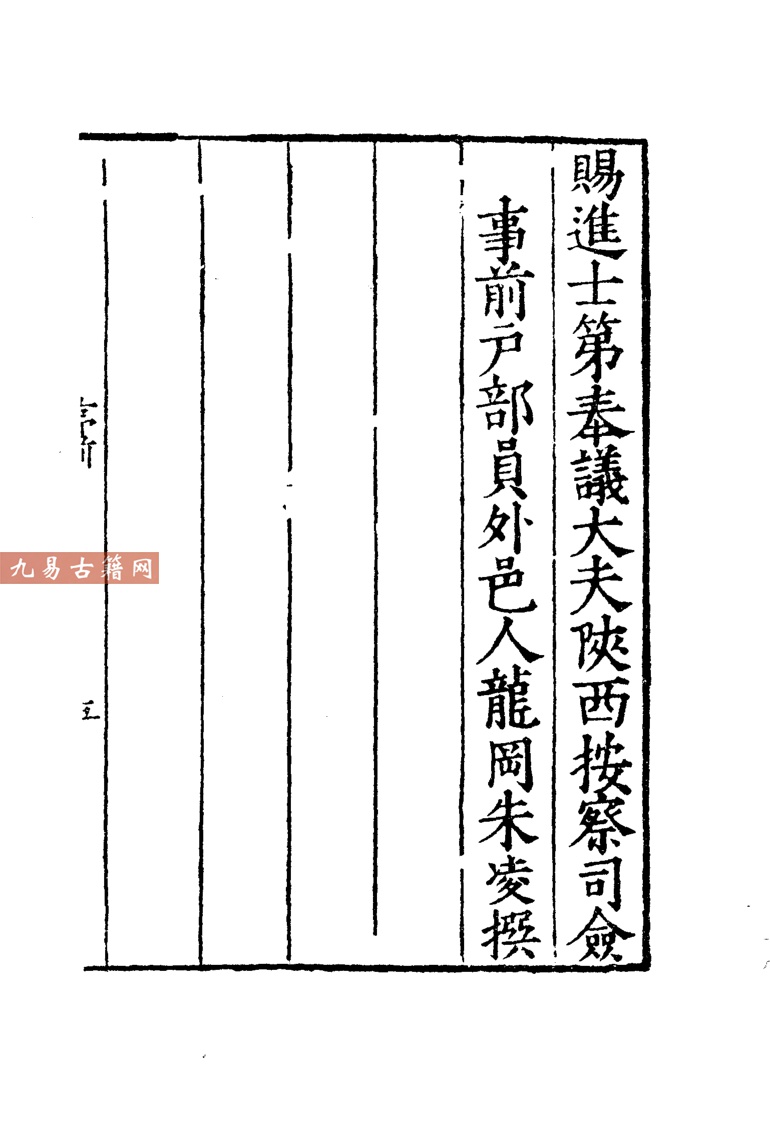 賜進士第奉議大夫陝西按察司僉
事前戶部員外邑人龍岡朱凌撰
五
九易古籍网